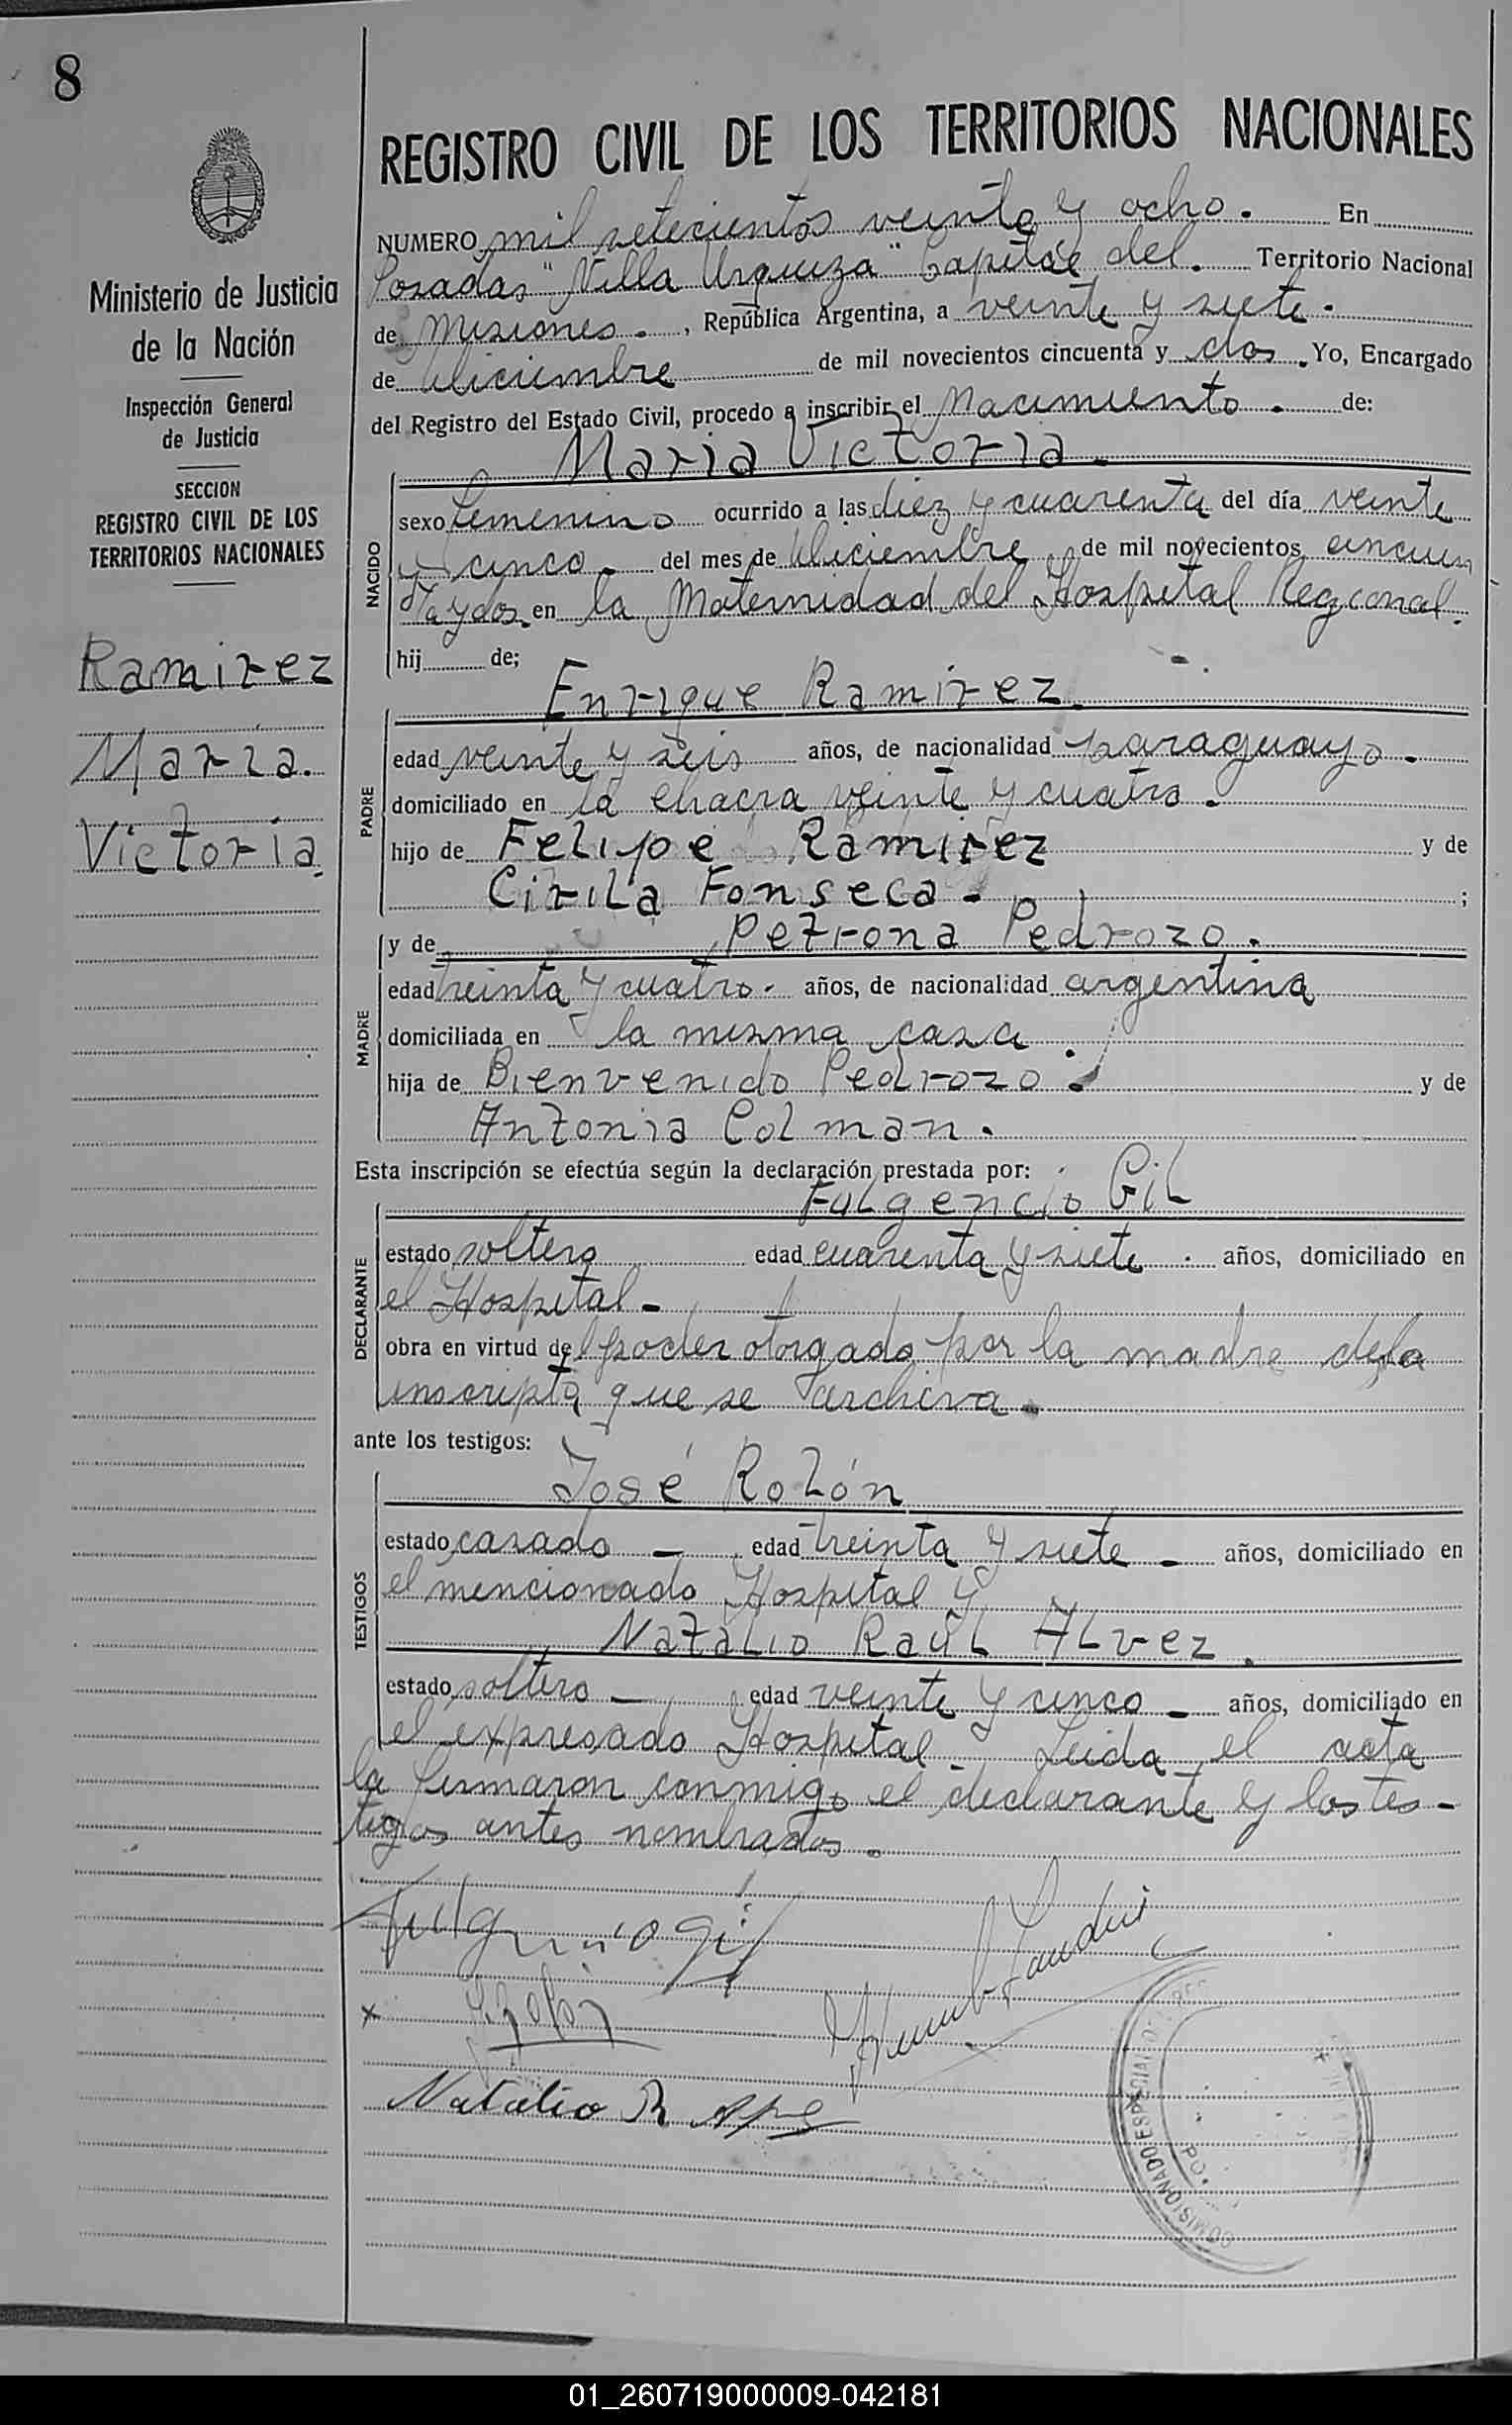 8
Ministerio de Justicia
de la Nación
Inspección General
de Justicia
SECCION
REGISTRO CIVIL DE LOS
TERRITORIOS NACIONALES
Ramirez
Maria.
Victoria.
REGISTRO CIVIL DE LOS TERRITORIOS NACIONALES
NUMERO mil setecientos veinte y ocho. En
Posadas "Villa Urquiza" Capital del. Territorio Nacional
de Misiones. , República Argentina, a veinte y siete.
de Diciembre de mil novecientos cincuenta y dos. Yo, Encargado
del Registro del Estado Civil, procedo a inscribir el Nacimiento. de:
Maria Victoria.
NACIDO
sexo femenino ocurrido a las diez y cuarenta del día veinte
y cinco. del mes de Diciembre, de mil novecientos cincuen
ta y dos. en la Maternidad del Hospital Regional.
hij de;
Enrique Ramirez.
PADRE
edad veinte y seis años, de nacionalidad paraguayo.
domiciliado en la chacra veinte y cuatro.
hijo de Felipe Ramirez y de
Cirila Fonseca - ;
MADRE
y de Petrona Pedrozo.
edad treinta y cuatro. años, de nacionalidad argentina
domiciliada en la misma casa.
hija de Bienvenido Pedrozo. y de
Antonia Colman.
Esta inscripción se efectúa según la declaración prestada por:
Fulgencio Gil
DECLARANTE
estado soltero edad cuarenta y siete. años, domiciliado en
el Hospital-
obra en virtud del poder otorgado por la madre de la
inscripta que se archiva.
ante los testigos:
José Rolón
TESTIGOS
estado casado - edad treinta y siete - años, domiciliado en
el mencionado Hospital y
Natalio Raúl Alvez.
estado soltero - edad veinte y cinco - años, domiciliado en
el expresado Hospital - Leida el acta
la firmaron conmigo el declarante y los tes-
tigos antes nombrados.
Fulgencio Gil
x
Natalio R
COMISIONADO ESPECIAL
01_260719000009-042181